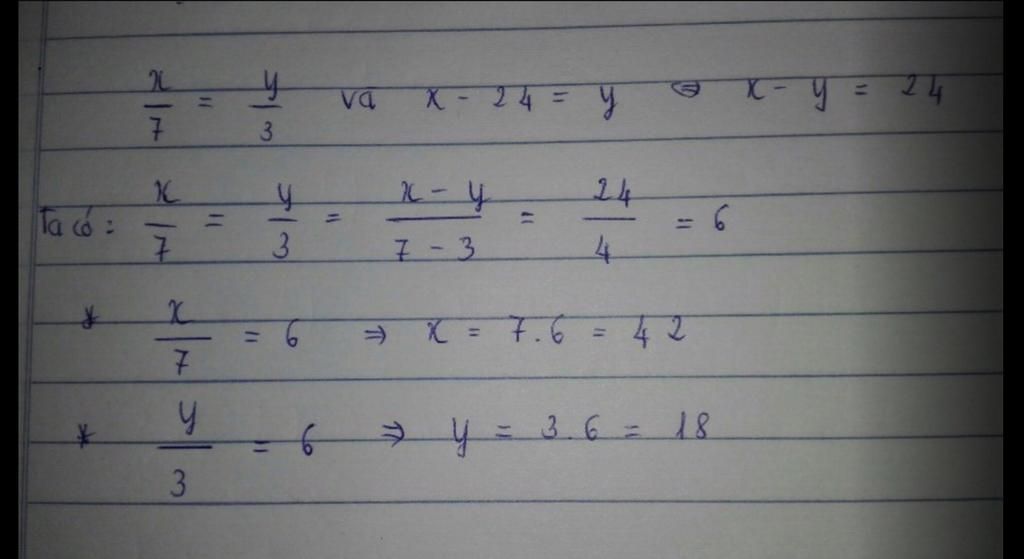 x/7 = y/3 và x - 24 = y ⇔ x - y = 24
Ta có: x/7 = y/3 = (x - y)/(7 - 3) = 24/4 = 6
* x/7 = 6 ⇒ x = 7.6 = 42
* y/3 = 6 ⇒ y = 3.6 = 18